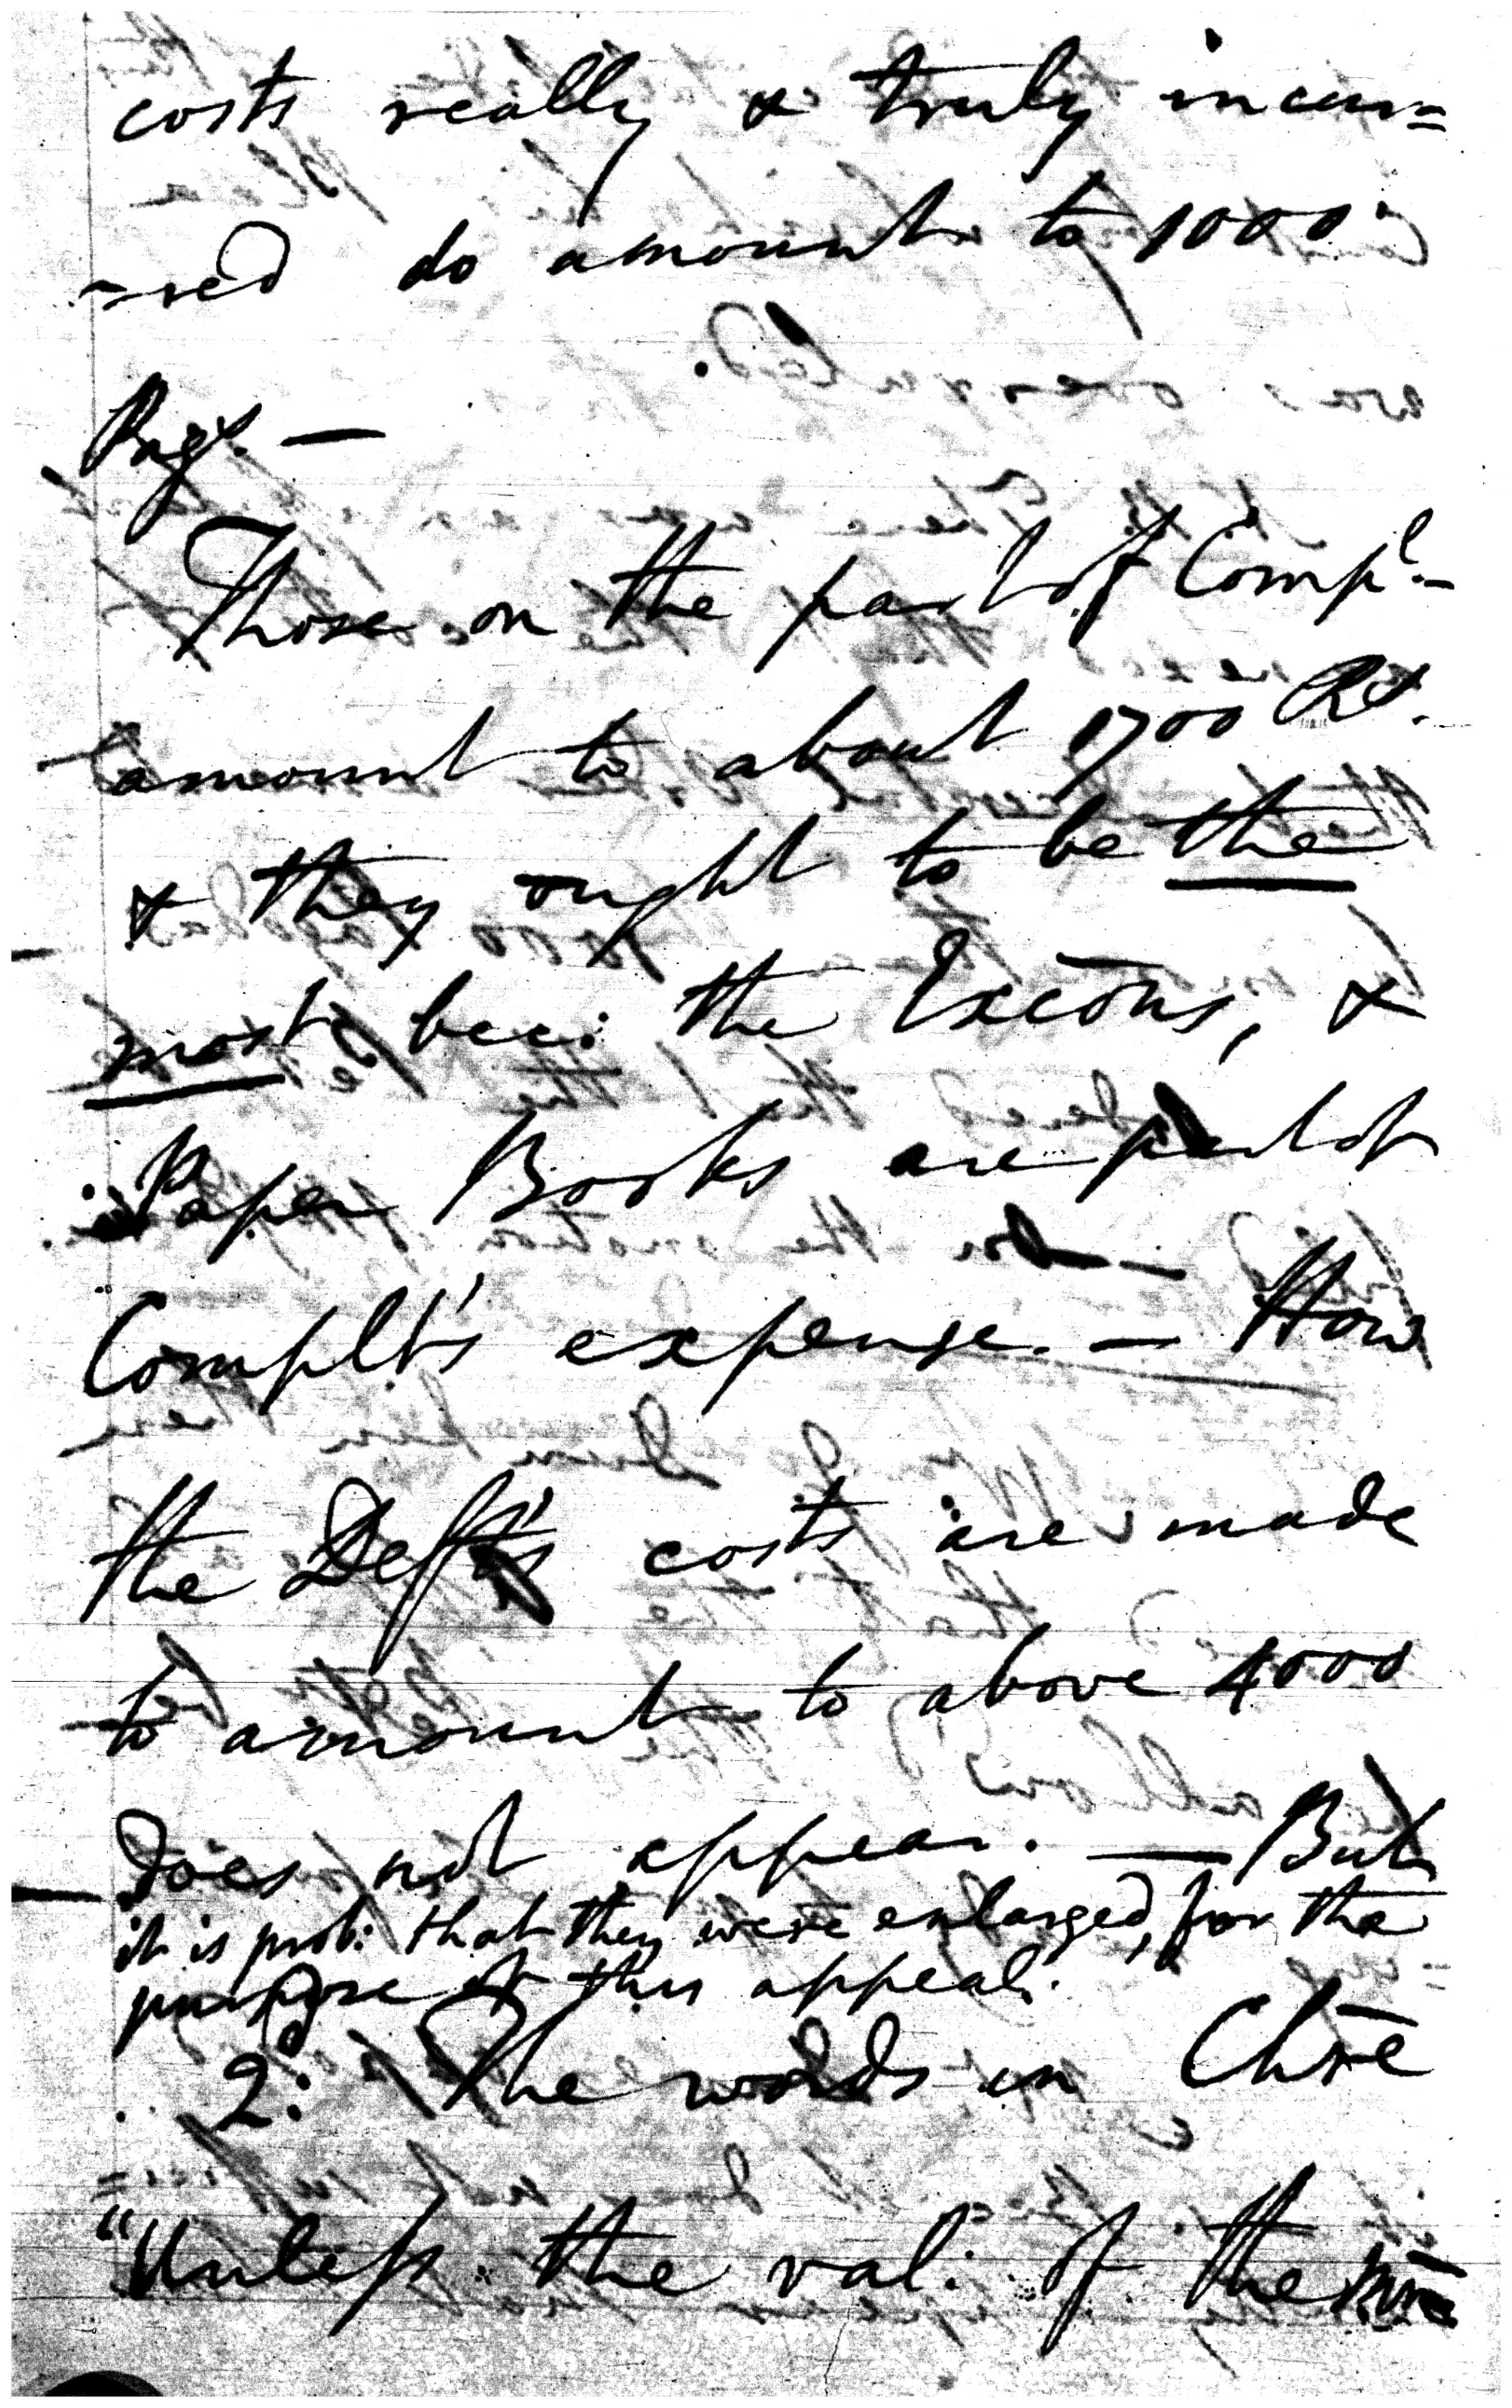 costs really & truly incur=
=red do amount to 1000
Pags. —
Those on the part of Compt. —
amount to about 1700 Rs.
& they ought to be the
most bec: the Excōns, &
Paper Books are part of
Complt's expense. — How
the Defft's costs are made
to amount to above 4000
does not appear. — But
it is prob: that they were enlarged, for the
purpose of this appeal.
2: The words in Chre
"Unless the val: of the